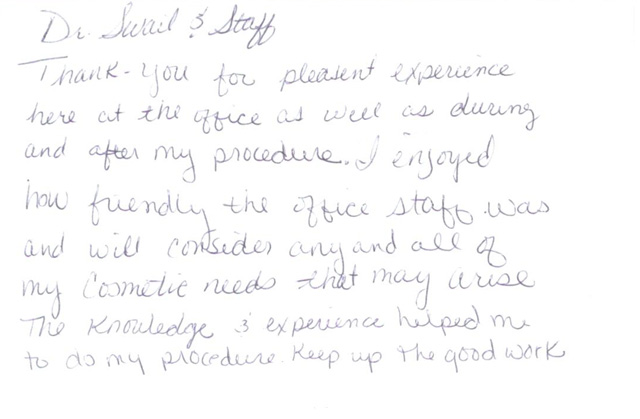 Dr. Swail & Staff
Thank-you for pleasent experience
here at the office as well as during
and after my procedure. I enjoyed
how friendly the office staff was
and will consider any and all of
my Cosmetic needs that may arise
The Knowledge & experience helped me
to do my procedure. Keep up the good work